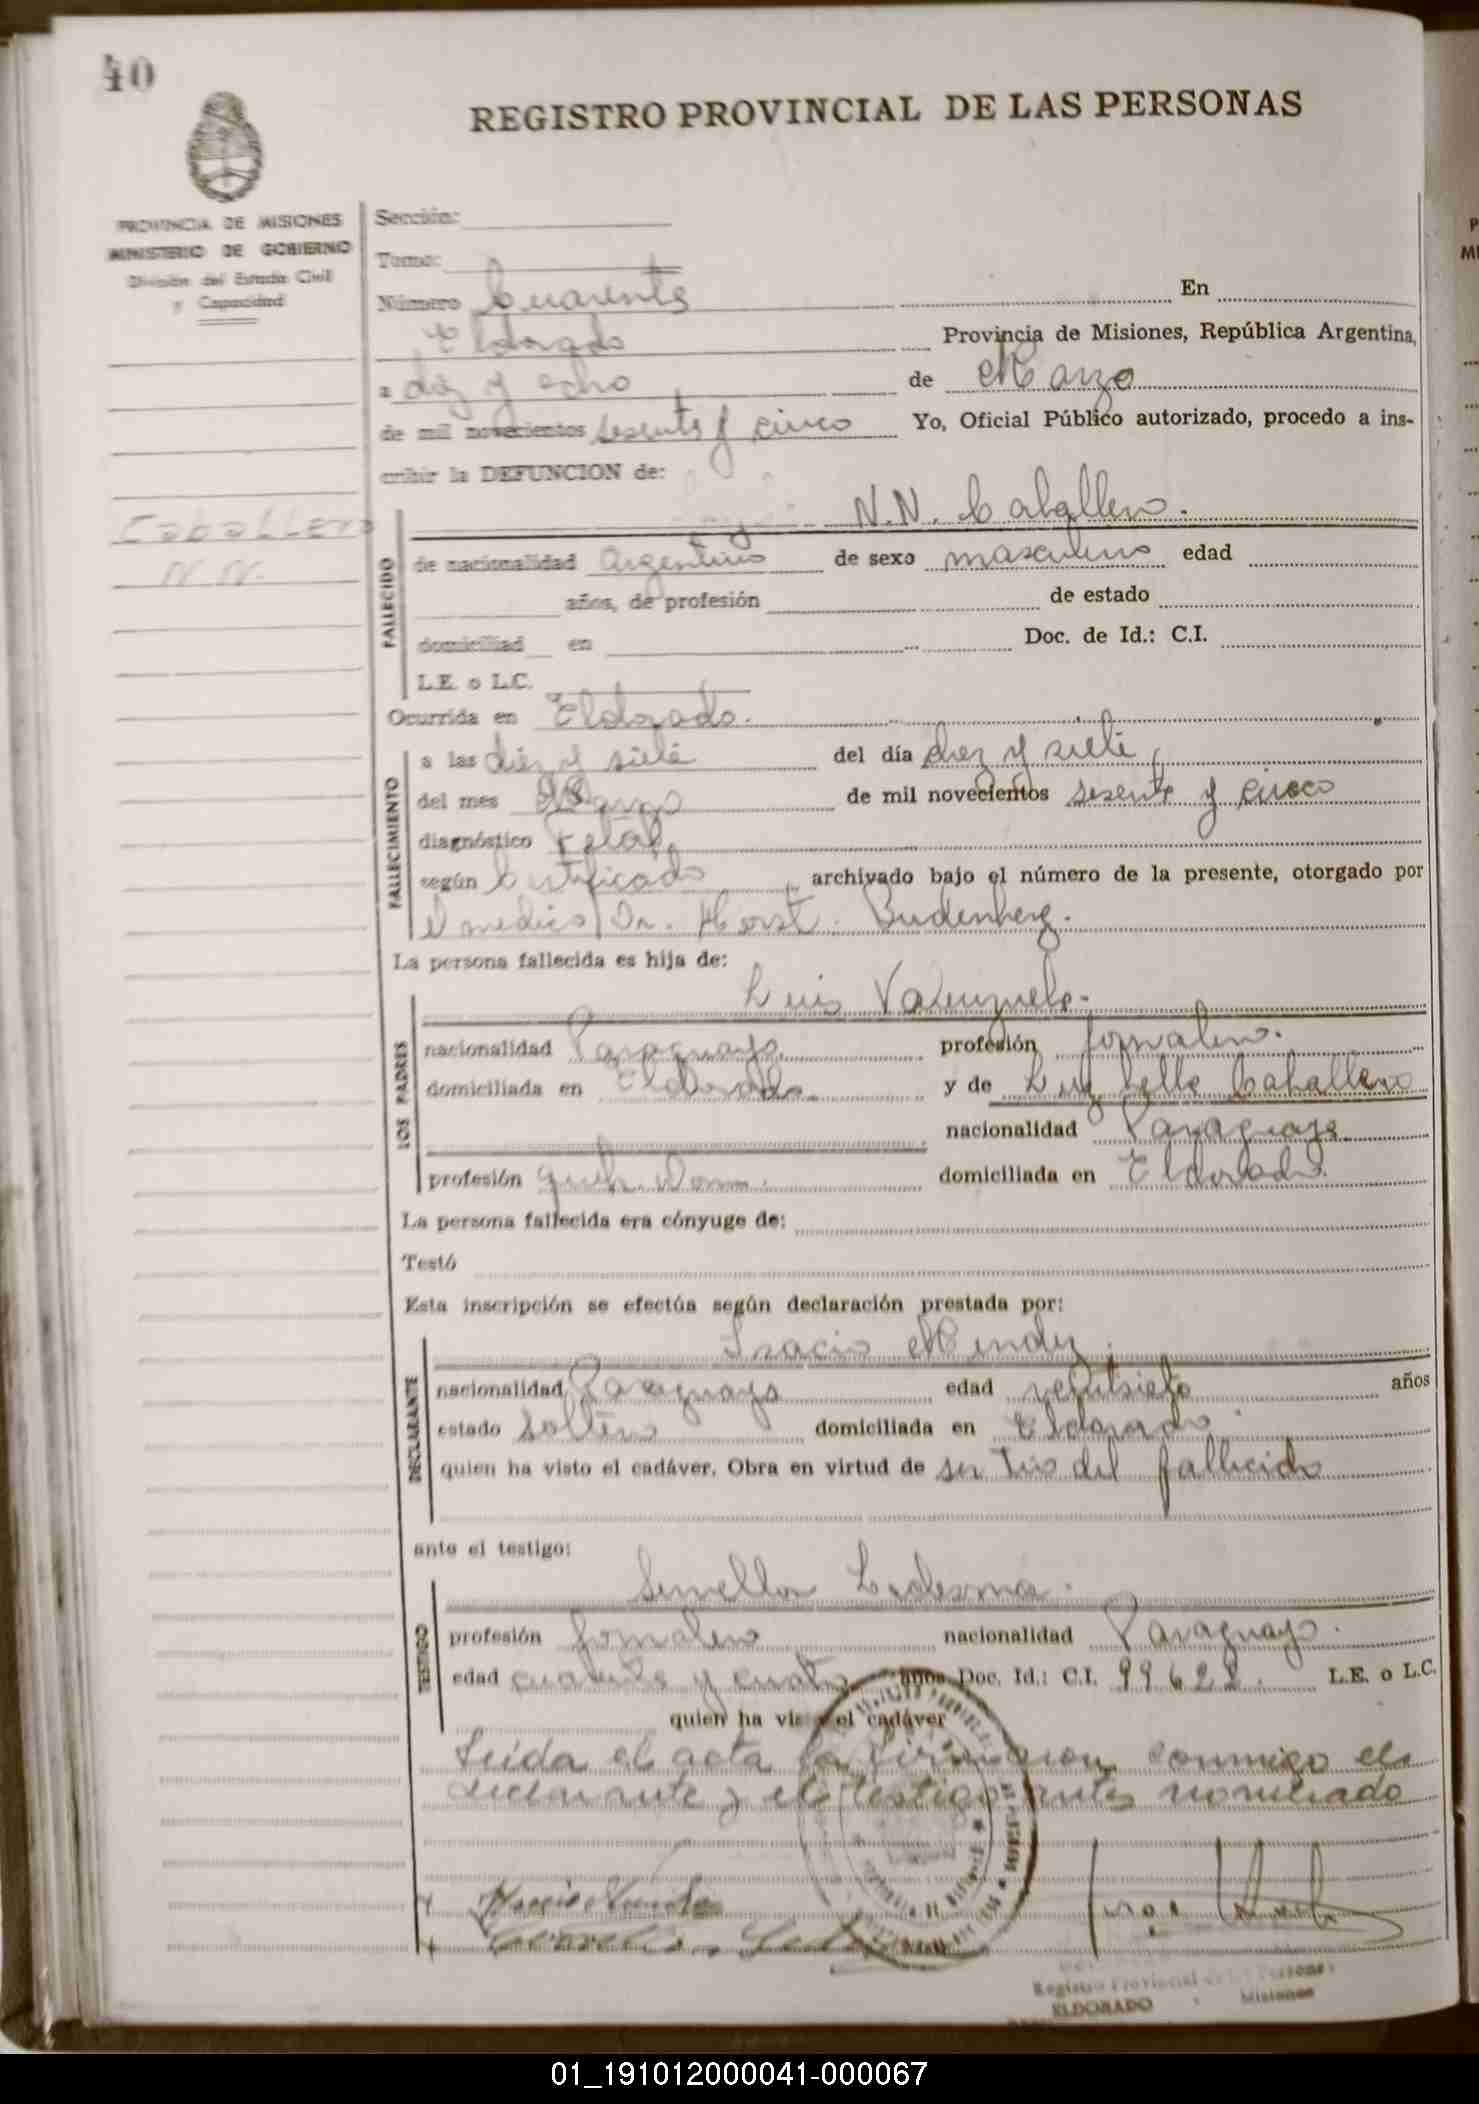 40
REGISTRO PROVINCIAL DE LAS PERSONAS
PROVINCIA DE MISIONES
MINISTERIO DE GOBIERNO
División del Estado Civil
y Capacidad
Sección:
Tomo:
Número Cuarenta En
Eldorado Provincia de Misiones, República Argentina,
a diez y ocho de Marzo
de mil novecientos sesenta y cinco Yo, Oficial Público autorizado, procedo a ins-
cribir la DEFUNCION de:
Caballero
N.N.
FALLECIDO
N.N. Caballero.
de nacionalidad Argentino de sexo masculino edad
años, de profesión de estado
domiciliad en Doc. de Id.: C.I.
L.E. o L.C.
Ocurrida en Eldorado.
FALLECIMIENTO
a las diez y siete del día diez y siete
del mes Marzo de mil novecientos sesenta y cinco
diagnóstico Fetal,
según Certificado archivado bajo el número de la presente, otorgado por
el medico Dr. Horst Budenberg.
La persona fallecida es hija de:
LOS PADRES
Luis Valenzuela.
nacionalidad Paraguayo profesión jornalero.
domiciliada en Eldorado y de Luz Caballero
nacionalidad Paraguaya
profesión domiciliada en Eldorado.
La persona fallecida era cónyuge de:
Testó
Esta inscripción se efectúa según declaración prestada por:
DECLARANTE
Mendez.
nacionalidad Paraguayo edad veintisiete años
estado soltero domiciliada en Eldorado.
quien ha visto el cadáver. Obra en virtud de ser tio del fallecido
ante el testigo:
TESTIGO
Ledesma.
profesión jornalero nacionalidad Paraguayo.
edad cuarenta y cuatro años Doc. Id.: C.I. 99622. L.E. o L.C.
quien ha visto el cadáver
Leida el acta la firman con conmigo el
declarante y el testigo antes nombrado
Registro Provincial de las Personas
ELDORADO Misiones
01_191012000041-000067